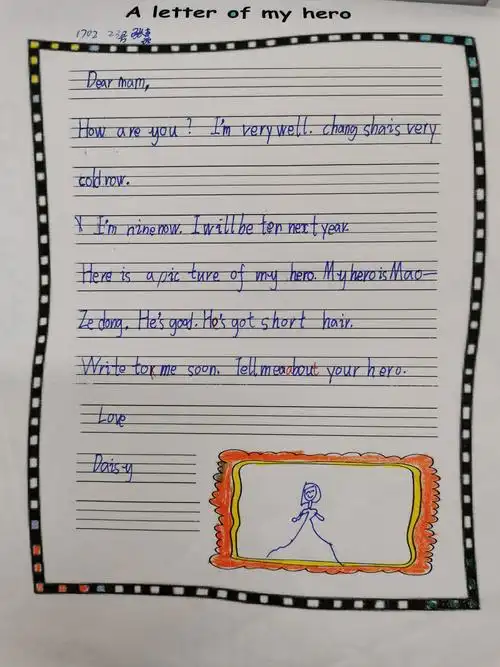 A letter of my hero
1702 23号
Dear mam,
How are you? I'm very well. chang sha is very
cold now.
I'm nine now. I will be ten next year.
Here is a pic ture of my hero. My hero is Mao—
Ze dong. He's good. He's got short hair.
Write to me soon. Tell me about your hero.
Love
Daisy